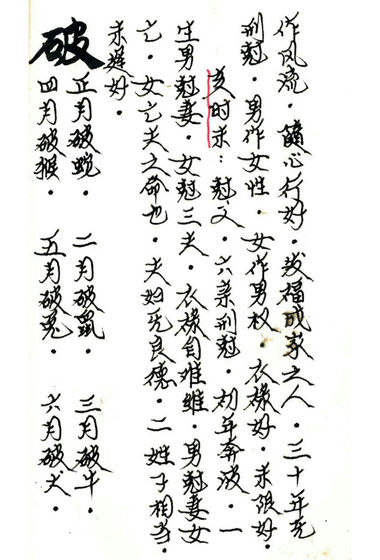 作风流·随心行好·发福成家之人·三十年无
刑克·男作女性·女作男权·衣禄好·末限好·
支时末:克父·六亲刑克·初年奔波·一
生男克妻·女克三夫·衣禄自难维·男克妻女
亡·女亡夫之命也·夫妇无良德·二姓子相当·
末运好·
破
正月破蛇·二月破鼠·三月破牛·
四月破猴·五月破兔·六月破犬·